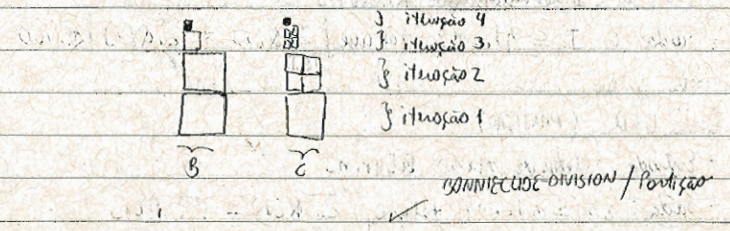 } iteração 4
} iteração 3
} iteração 2
} iteração 1
B C
BONNIECLIDE-DIVISION / Partição